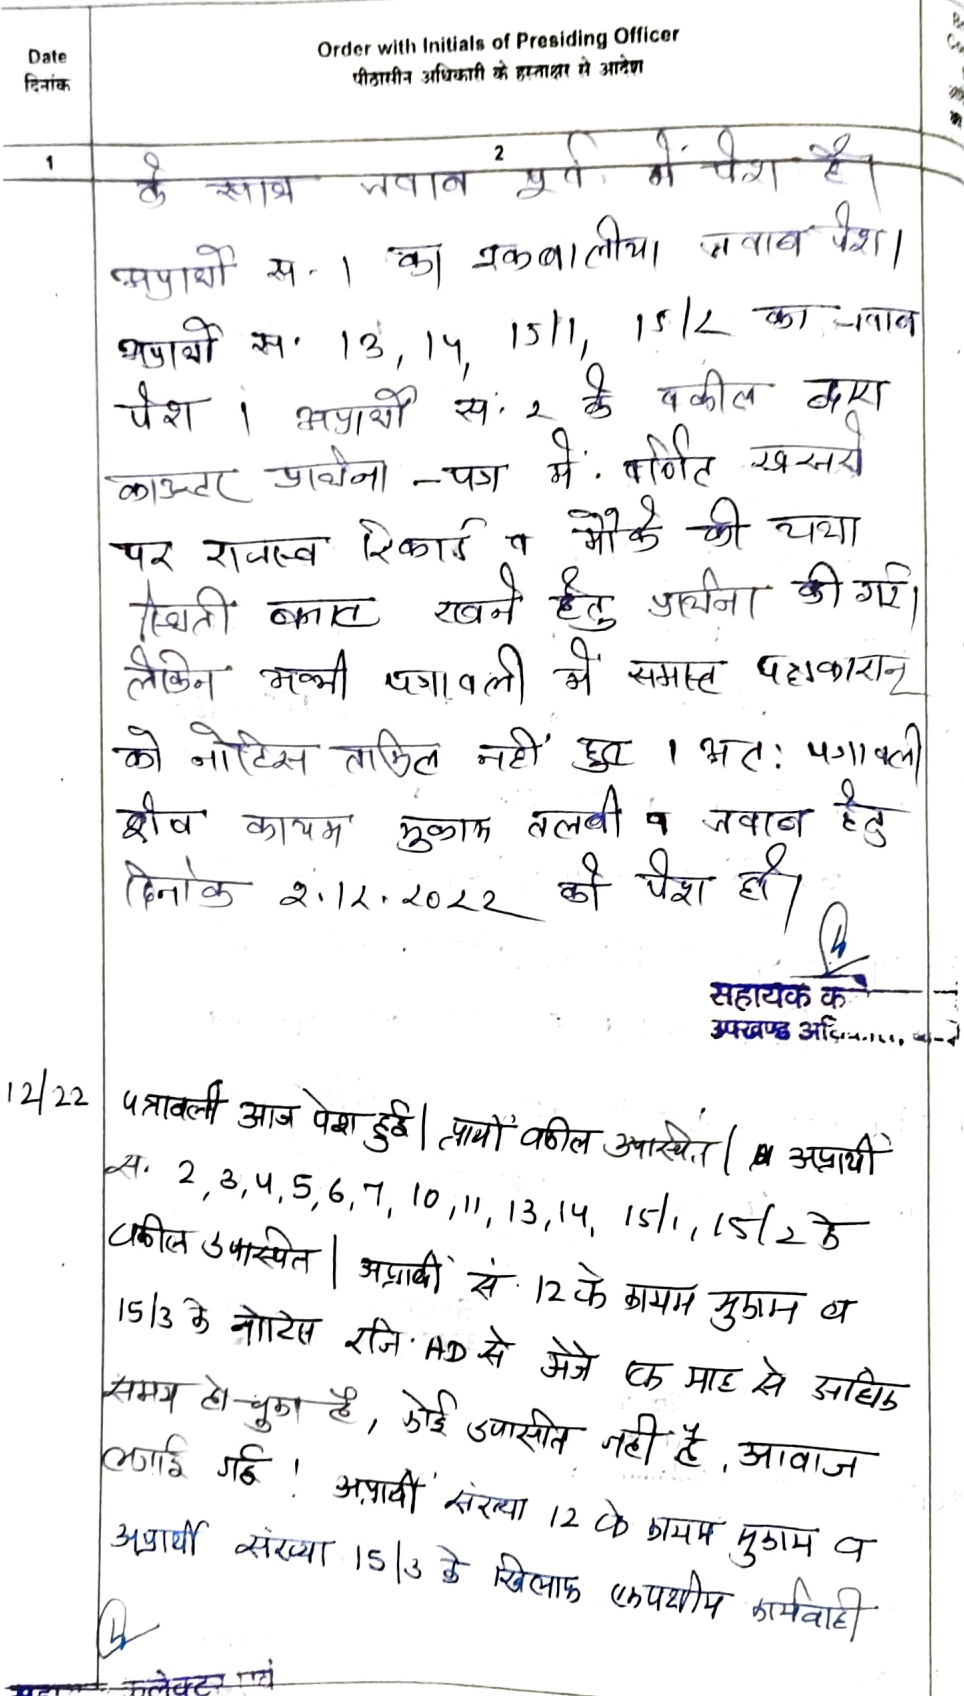 Date
दिनांक
Order with Initials of Presiding Officer
पीठासीन अधिकारी के हस्ताक्षर से आदेश
1
2
के साथ जवाब पूर्व में पेश है।
अप्रार्थी स. 1 का इकबालीया जवाब पेश।
अप्रार्थी स. 13, 14, 15/1, 15/2 का जवाब
पेश । अप्रार्थी स. 2 के वकील द्वारा
काउन्टर प्रार्थना-पत्र में वर्णित खसरो
पर राजस्व रिकार्ड व मौके की यथा
स्थिती रखने हेतु प्रार्थना की गई।
लेकिन अभी पत्रावली में समस्त पक्षकारान्
को नोटिस तामिल नहीं हुए । अत: पत्रावली
शेष कायम मुकाम तलबी व जवाब हेतु
दिनांक 2.12.2022 को पेश हो।
सहायक क
उपखण्ड
12/22
पत्रावली आज पेश हुई। प्रार्थी वकील उपस्थित। अप्रार्थी
स. 2, 3, 4, 5, 6, 7, 10, 11, 13, 14, 15/1, 15/2 के
वकील उपस्थित। अप्रार्थी सं. 12 के कायम मुकाम व
15/3 के नोटिस रजि. AD से भेजे एक माह से अधिक
समय हो चुका है, कोई उपस्थित नहीं है, आवाज
लगाई गई ! अप्रार्थी संख्या 12 के कायम मुकाम व
अप्रार्थी संख्या 15/3 के खिलाफ एकपक्षीय कार्यवाही
कलेक्टर एवं